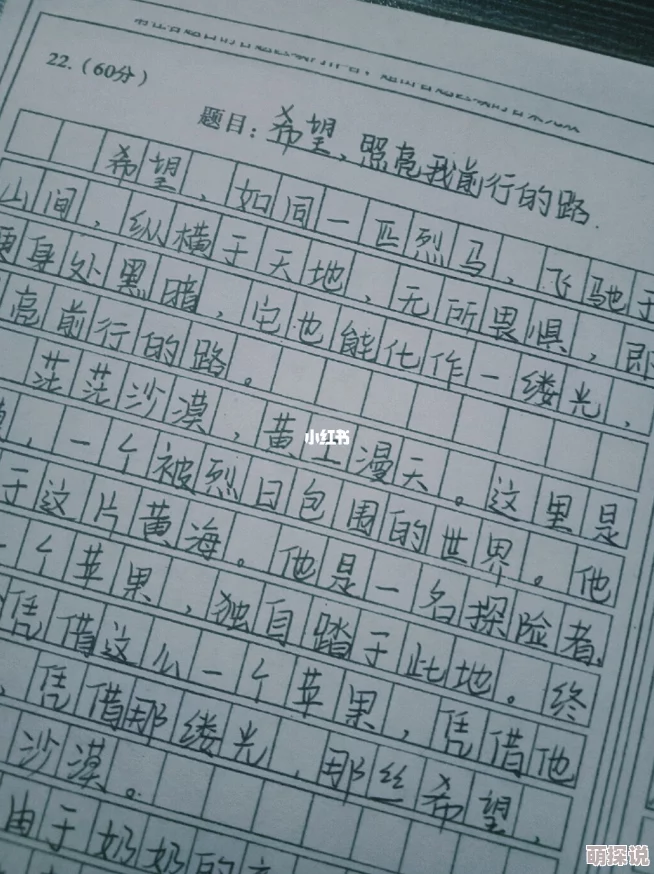 22.（60分）
题目：希望，照亮我前行的路.
希望，如同一匹烈马，飞驰于
山间，纵横于天地，无所畏惧，即
身处黑暗，它也能化作一缕光，
亮前行的路。
茫茫沙漠，黄土漫天。这里是
，一个被烈日包围的世界。他
于这片黄海。他是一名探险者，
一个苹果，独自踏于此地。终
凭借这么一个苹果，凭借他
，凭借那缕光，那丝希望，
沙漠。
由于奶奶的
小红书
萌探说